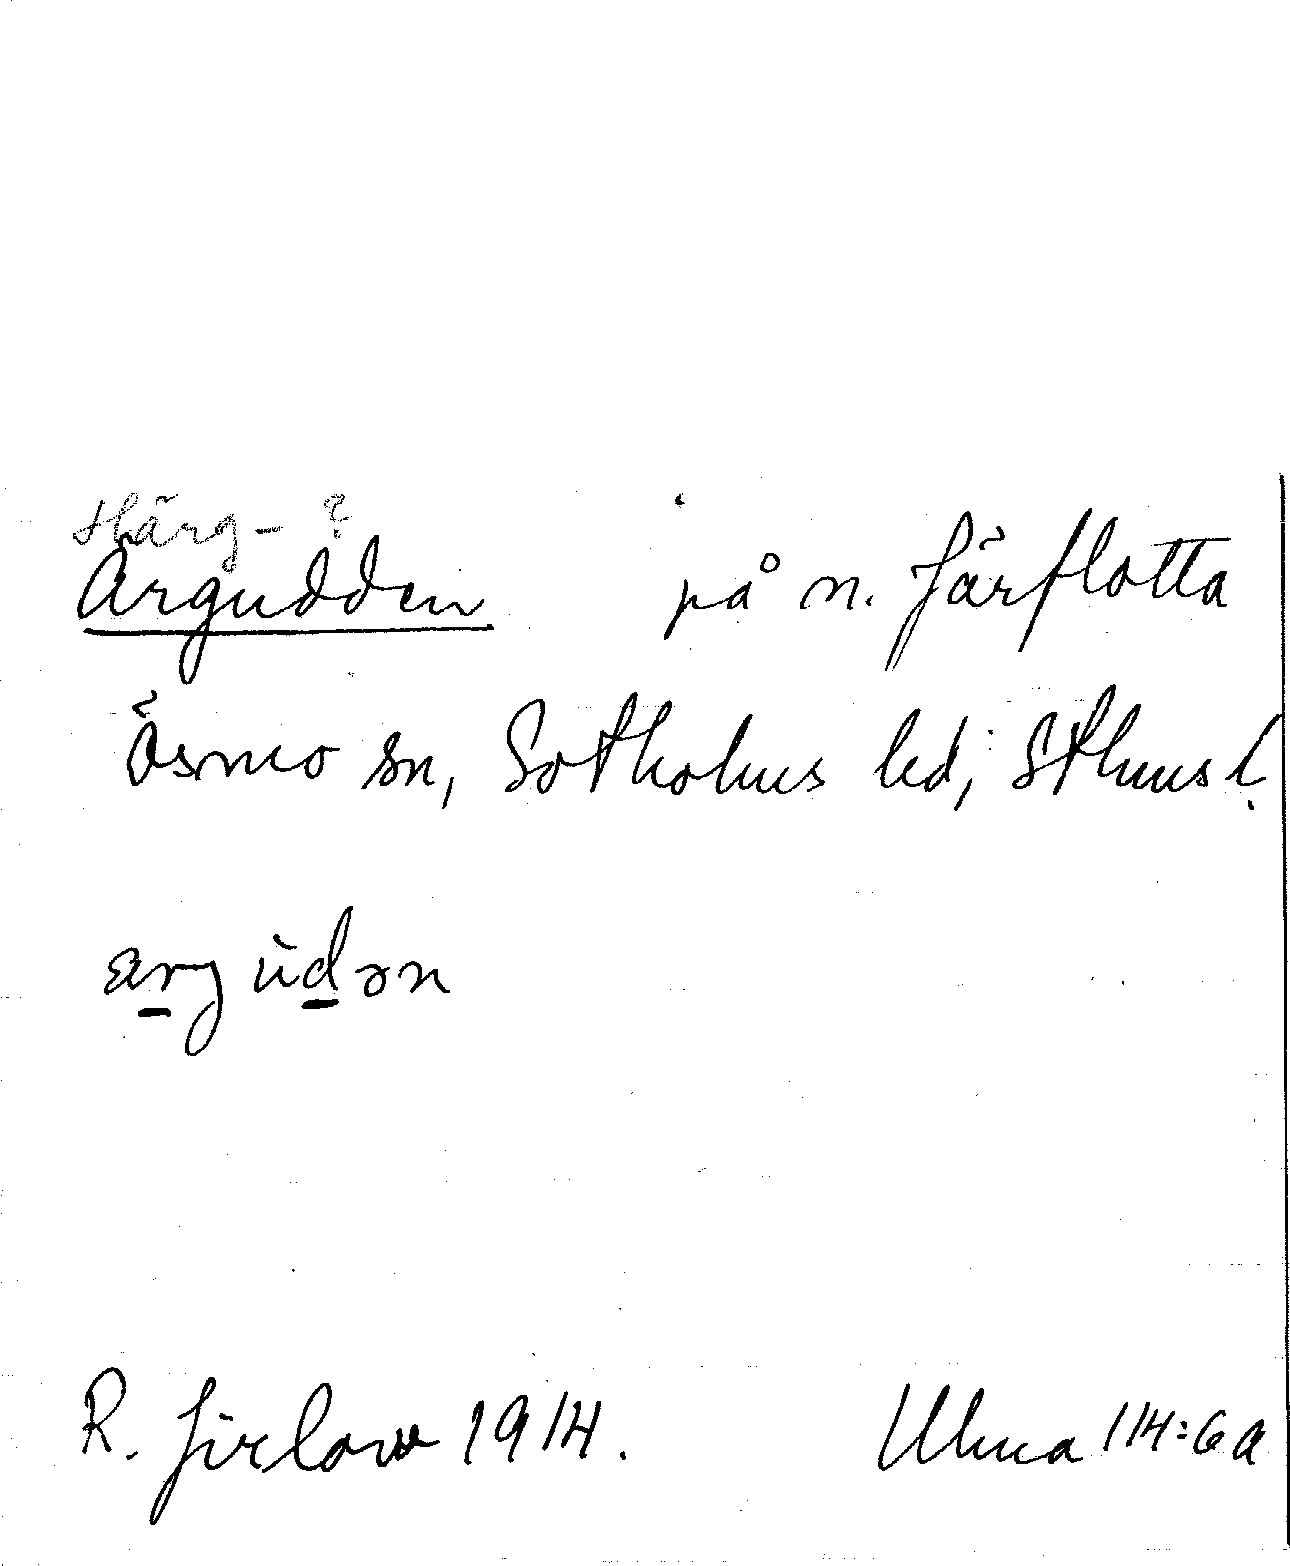 Härg- ?
Ärgudden på n. Järflotta
Ösmo sn, Sotholms hd, Sthms l.
ærg ùdən
R. Jirlow 1914. Ulma 114:6a